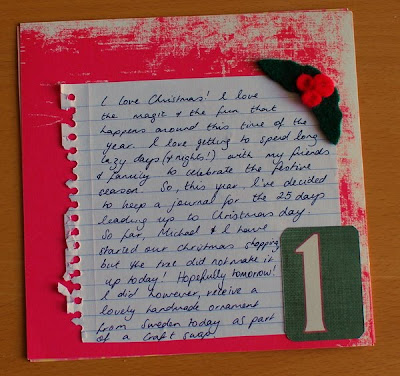 I love Christmas! I love
the magic & the fun that
happens around this time of the
year. I love getting to spend long
lazy days (& nights!) with my friends
& family to celebrate the festive
season. So, this year, I've decided
to keep a journal for the 25 days
leading up to Christmas day.
So far, Michael & I have
started our christmas shopping
but the tree did not make it
up today! Hopefully tomorrow!
I did however, receive a
lovely handmade ornament
from Sweden today as part
of a craft swap.
1